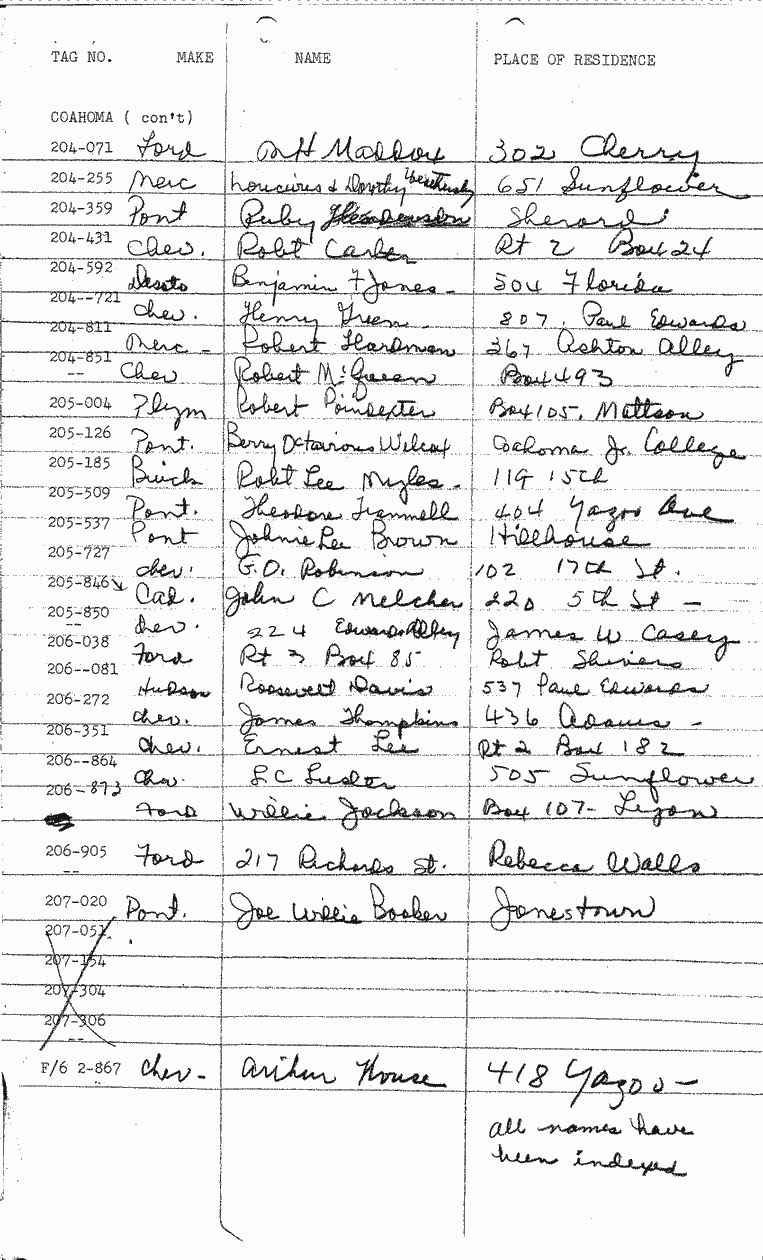 TAG NO. MAKE NAME PLACE OF RESIDENCE
COAHOMA ( con't)
204-071 Ford M H Maddox 302 Cherry
204-255 Merc & Dorothy 651 Sunflower
204-359 Pont Ruby Sherard
204-431 Chev. Robt Carter Rt 2 Box 24
204-592 Desoto Benjamin F Jones - 504 Florida
204--721 Chev. Henry Green - 807 Paul Edwards
204-811 Merc - Robert Hardman 367 Ashton Alley
204-851 -- Chev Robert McGreen Box 493
205-004 Plym Robert Poindexter Box 105, Mattson
205-126 Pont. Berry Octavious Wilcox Coahoma Jr. College
205-185 Buick Robt Lee Myles - 119 15th
205-509 Pont. Theodore Trammell 404 Yazoo Ave
205-537 Pont Johnie Lee Brown Hillhouse
205-727 Chev. G.O. Robinson 102 17th St.
205-846 Cad. John C Melcher 220 5th St -
205-850 -- Chev. 224 Edwards Alley James W Casey
206-038 Ford Rt 3 Box 85 Robt Shivers
206--081 Hudson Roosevelt Davis 537 Paul Edwards
206-272 Chev. James Thompkins 436 Adams -
206-351 Chev. Ernest Lee Rt 2 Box 182
206--864 Chev. L C Luster 505 Sunflower
206-873 Ford Willie Jackson Box 107- Lyon
206-905 -- Ford 217 Richards St. Rebecca Walls
207-020 Pont. Joe Willie Booker Jonestown
207-051
207-154
207-304
207-306
--
F/6 2-867 Chev - Arthur House 418 Yazoo -
all names have
been indexed